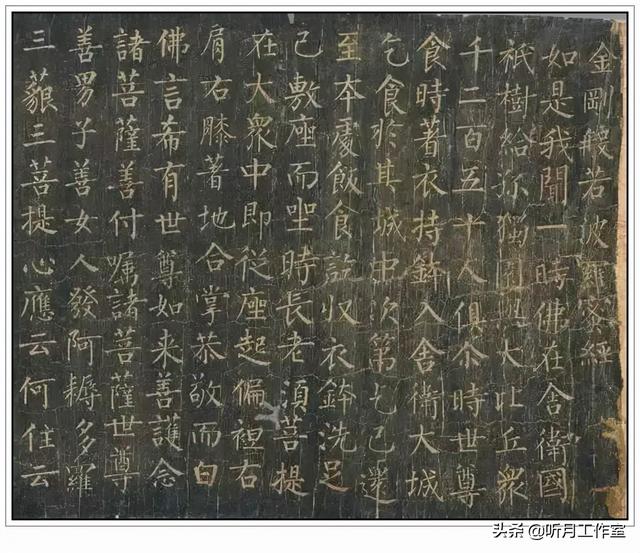 金剛般若波羅蜜經
如是我聞一時佛在舍衛國
祇樹給孤獨園與大比丘衆
千二百五十人俱尒時世尊
食時著衣持鉢入舍衛大城
乞食於其城中次第乞已還
至本處飯食訖収衣鉢洗足
已敷座而坐時長老須菩提
在大衆中即從座起偏袒右
肩右膝著地合掌恭敬而白
佛言希有世尊如来善護念
諸菩薩善付嘱諸菩薩世尊
善男子善女人發阿耨多羅
三藐三菩提心應云何住云
头条 @听月工作室